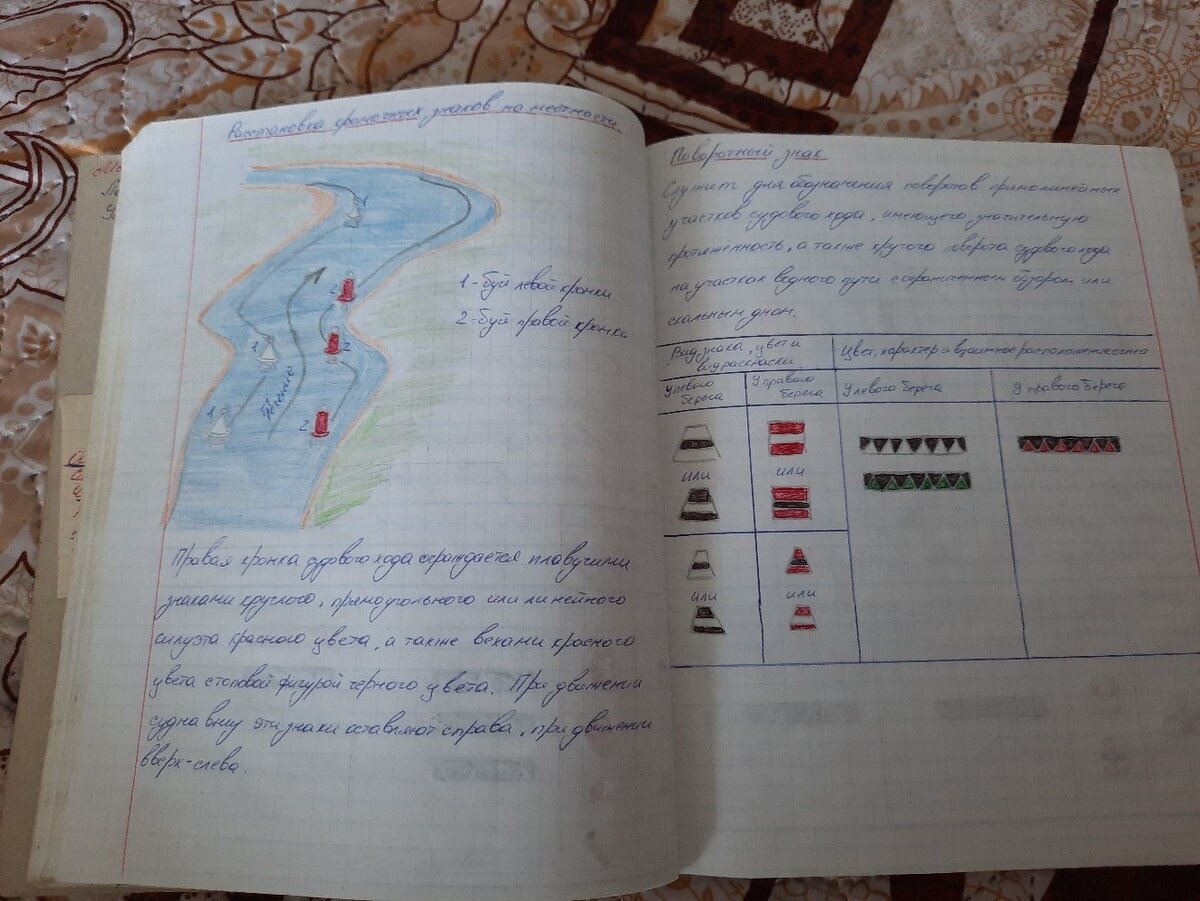 Расстановка кромочных знаков на местности.
1
2
1 - буй левой кромки
2 - буй правой кромки
2
1
Течение
1
2
Правая кромка судового хода ограждается плавучими
знаками круглого, прямоугольного или линейного
силуэта красного цвета, а также вехами красного
цвета с топовой фигурой черного цвета. При движении
судна вниз эти знаки оставляют справа, при движении
вверх - слева.
Поворотный знак
Служит для обозначения поворотов прямолинейных
участков судового хода, имеющего значительную
протяженность, а также крутого поворота судового хода
на участках водного пути с ограниченным обзором или
скальным дном.
Вид знака, цвет и
Цвет, характер и взаимное расположение огней
У левого берега
У правого берега
У левого берега
У правого берега
или
или
или
или